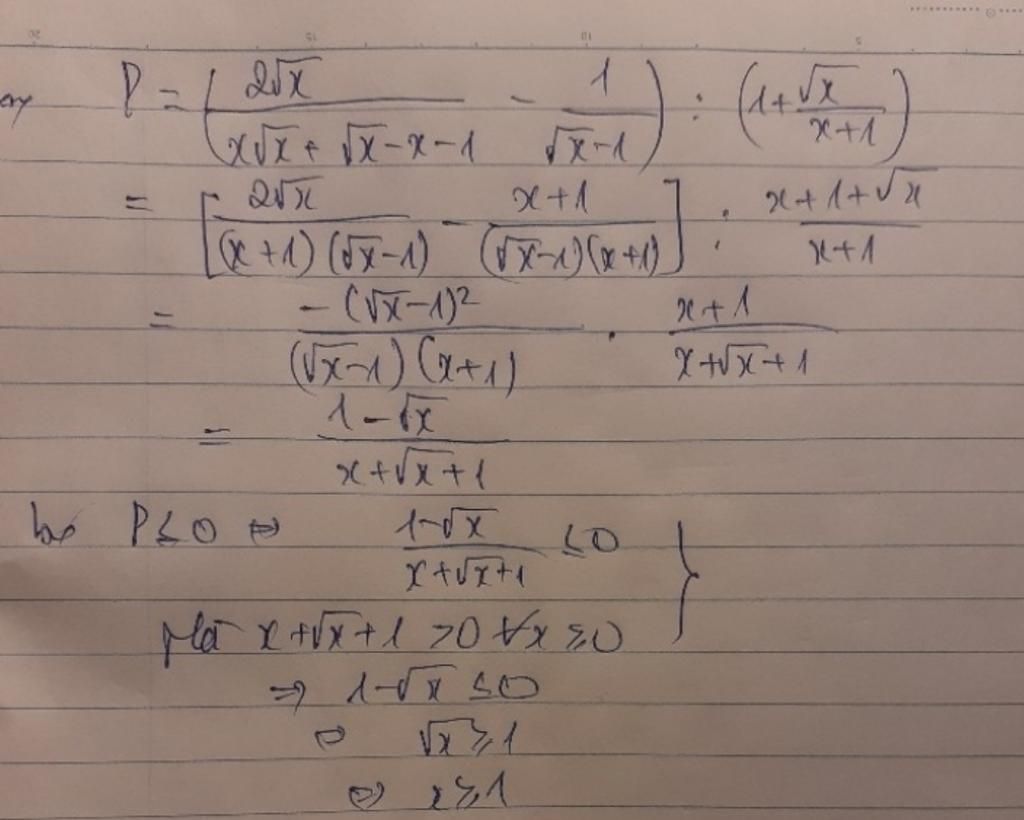 P = (2√x / (x√x + √x - x - 1) - 1 / (√x - 1)) : (1 + √x / (x + 1))
= [2√x / ((x + 1)(√x - 1)) - (x + 1) / ((√x - 1)(x + 1))] : (x + 1 + √x) / (x + 1)
= -(√x - 1)² / ((√x - 1)(x + 1)) · (x + 1) / (x + √x + 1)
= (1 - √x) / (x + √x + 1)
P ≤ 0 ⇔ (1 - √x) / (x + √x + 1) ≤ 0 }
x + √x + 1 > 0 ∀x ≥ 0
⇒ 1 - √x ≤ 0
⇔ √x ≥ 1
⇔ x ≥ 1